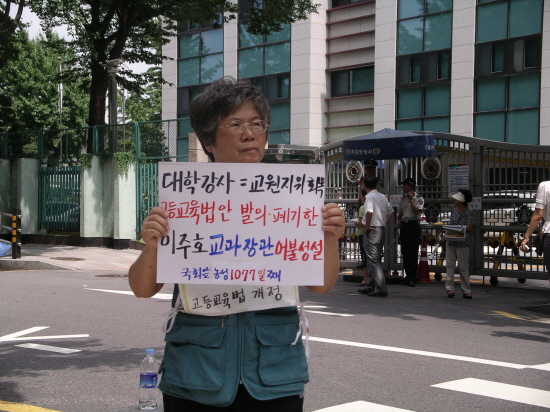 대학강사=교원지위회복
고등교육법안 발의·폐기한
이주호 교과장관 어불성설
국회앞 농성 1077일째
고등교육법 개정